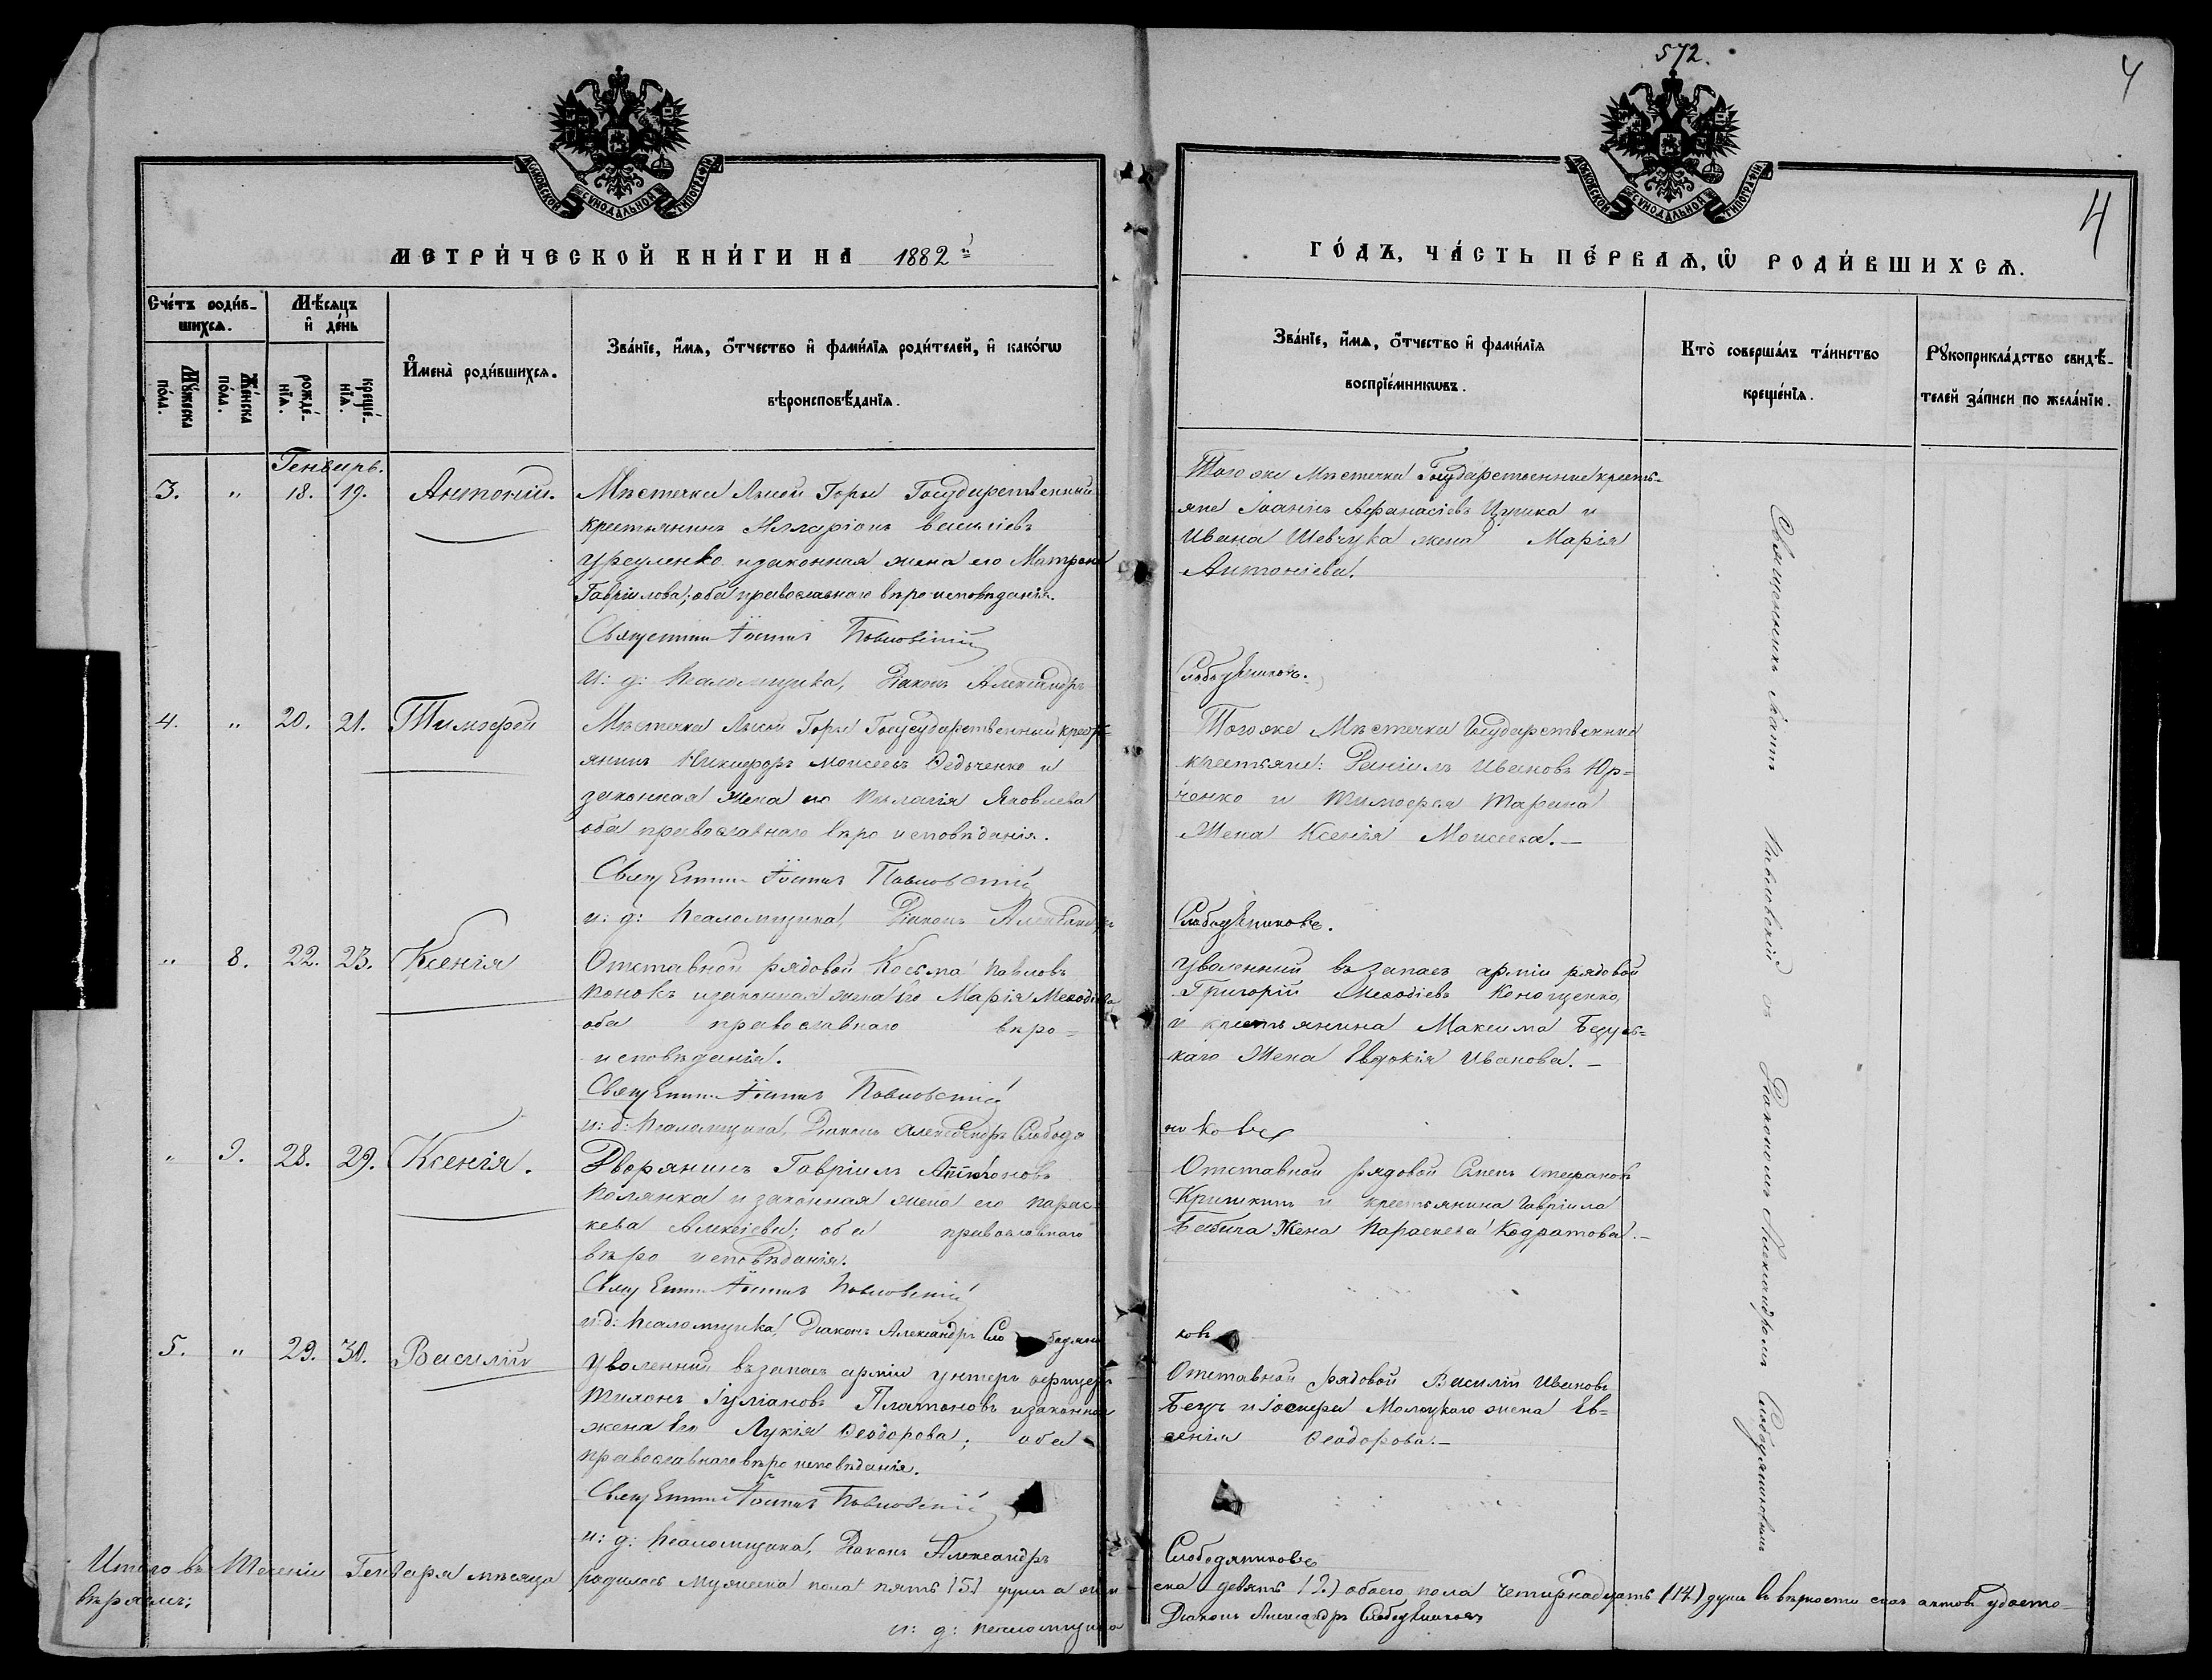 572.
4
4
МОСКОВСКОЙ СѴНОДАЛЬНОЙ ТИПОГРАФІИ
МОСКОВСКОЙ СѴНОДАЛЬНОЙ ТИПОГРАФІИ
МЕТРИ́ЧЕСКОЙ КНИ́ГИ НА 1882й
ГО́ДЪ, ЧА́СТЬ ПЕ́РВАЯ, Ѡ РОДИ́ВШИХСЯ.
Сче́тъ роди́в-
шихся.
Мѣ́сяцъ
и҆ де́нь
Мꙋ́жеска
по́ла.
Же́нска
по́ла.
рожде́-
нїѧ.
креще́-
нїѧ.
И҆мена̀ роди́вшихсѧ.
Зва́нїе, и҆́мѧ, ѻ҆́тчество и҆ фами́лїѧ роди́телей, и҆ како́гѡ
вѣроисповѣ́данїѧ.
Зва́нїе, и҆́мѧ, ѻ҆́тчество и҆ фами́лїѧ
воспрїе́мникѡвъ.
Кто̀ соверша́лъ та́инство
креще́нїѧ.
Рꙋкоприкла́дство свидѣ́-
телей за́писи по жела́нїю.
Генварь.
3. " 18. 19. Антоній.
Мѣстечка Лысой Горы Государственный
крестьянинъ Илларіонъ Василіевъ
и законная жена его Матрона
Гавріилова; оба православнаго вѣроисповѣданія.
Священникъ Іоаннъ Павловскій
и: д: псаломщика, Діаконъ Александръ
Того же Мѣстечка Государственные крестья-
яне Іоаннъ Афанасіевъ и
Ивана Шевчука жена Марія
Антоніева.
Слободяниковъ.
4. " 20. 21. Тимофей
Мѣстечка Лысой Горы Госусударственный кресть-
янинъ Никифоръ Моисеевъ Ѳедьченко и
законная жена его Пелагія Яковлева
оба православнаго вѣроисповѣданія.
Священникъ Іоаннъ Павловскій
и: д: псаломщика, Діаконъ Александръ
Того же Мѣстечка Государственные
крестьяне: Даніилъ Ивановъ Юр-
ченко и Тимофея Тарана
Жена Ксенія Моисеева.—
Слободяниковъ.
" 8. 22. 23. Ксенія
Отставной рядовой Косьма Павловъ
и законная жена его Марія Меѳодіева
оба православнаго вѣро-
исповѣданія.
Священникъ Іоаннъ Павловскій
и: д: псаломщика, Діаконъ Александръ Слободя
Уволенный въ запасъ арміи рядовой
Григорій Меѳодіевъ Кономценко
и крестьянина Максима
каго Жена Евдокія Иванова.—
никовъ
" 9. 28. 29. Ксенія.
Дворянинъ Гавріилъ Антоновъ
Полянка и законная жена его Парас-
кева Алексіева; оба православнаго
вѣроисповѣданія.
Священникъ Іоаннъ Павловскій
и: д: псаломщика, Діаконъ Александръ Слободяни
Отставной рядовой Стефановъ
и крестьянина Гавріила
Жена Параскева Кодратова.—
ковъ
5. " 29. 30. Василій
Уволенный въ запасъ арміи унтеръ офицеръ
Тихонъ Іуліановъ Платоновъ и законная
жена его Лукія Ѳеодорова; оба
православнаго вѣроисповѣданія.
Священникъ Іоаннъ Павловскій
и: д: псаломщика, Діаконъ Александръ
Отставной рядовой Василій Ивановъ
и Іосифа жена Ев-
генія Ѳеодорова.—
Слободяниковъ
Священникъ Іоаннъ Павловскій съ Діакономъ Александромъ Слободяниковымъ
Итого въ теченіи Генваря мѣсяца родилось мужеска пола пять (5) душъ а жен-ска девять (9.) обоего пола четырнадцать (14) душъ въ вѣрности сихъ актовъ удосто-
вѣряемъ;
и: д: псаломщика Діаконъ Александръ Слободяниковъ